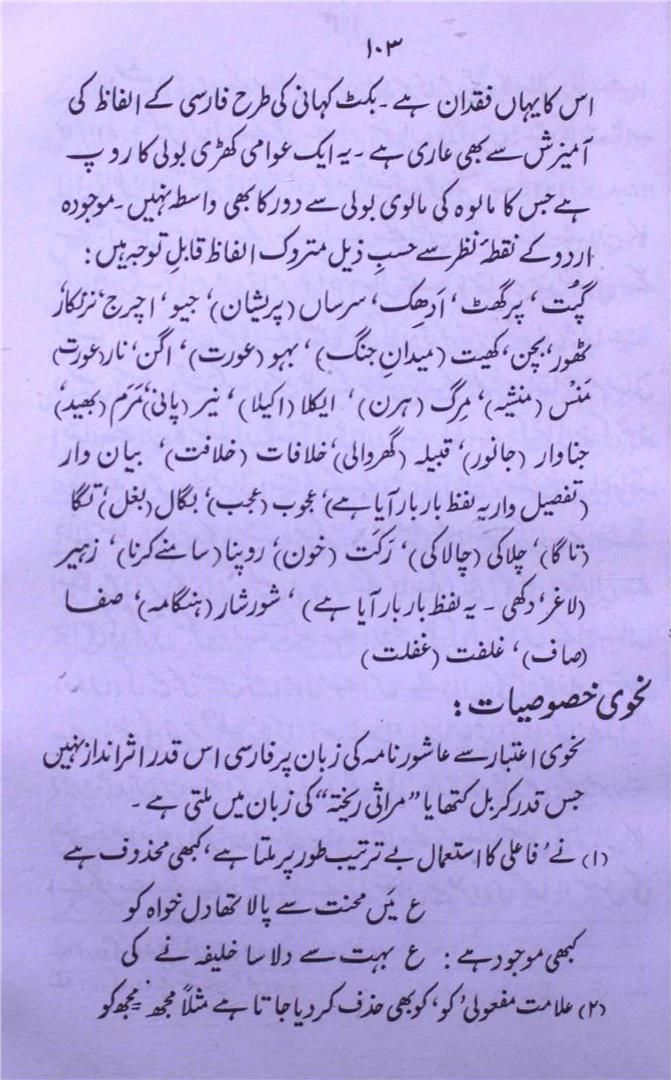 ۱۰۳
اس کا یہاں فقدان ہے۔ بکٹ کہانی کی طرح فارسی کے الفاظ کی
آمیزش سے بھی عاری ہے۔ یہ ایک عوامی کھڑی بولی کا روپ
ہے جس کا مالوہ کی مالوی بولی سے دور کا بھی واسطہ نہیں۔ موجودہ
اردو کے نقطۂ نظر سے حسبِ ذیل متروک الفاظ قابلِ توجہ ہیں:
گپُت، پرگھٹ، ادھِک، سرساں (پریشان)، جیو، اچرج، نرنکار،
ٹھور، بچن، کھیت (میدانِ جنگ)، بہو (عورت)، اگن، نار (عورت)
مَنُس (منشیہ)، مِرگ (ہرن)، ایکلا (اکیلا)، نیر (پانی)، مَرَم (بھید)،
جناوار (جانور)، قبیلہ (گھروالی)، خلافات (خلافت)، بیان وار
(تفصیل وار یہ لفظ بار بار آیا ہے)، عجوب (عجب)، بگال (بغل)، تگا
(تاگا)، چلاکی (چالاکی)، رَکَت (خون)، روپنا (سامنے کرنا)، زہیر
(لاغر، دکھی۔ یہ لفظ بار بار آیا ہے)، شورشار (ہنگامہ)، صفا
(صاف)، غلفت (غفلت)
نحوی خصوصیات:
نحوی اعتبار سے عاشور نامہ کی زبان پر فارسی اس قدر اثر انداز نہیں
جس قدر کربل کتھا یا "مراثی ریختہ" کی زبان میں ملتی ہے۔
(۱) نے، فاعلی کا استعمال بے ترتیب طور پر ملتا ہے، کبھی محذوف ہے
ع میَں محنت سے پالا تھا دل خواہ کو
کبھی موجود ہے: ع بہت سے دلاسا خلیفہ نے کی
(۲) علامت مفعولی 'کو، کو بھی حذف کر دیا جاتا ہے مثلاً مجھ = مجھ کو